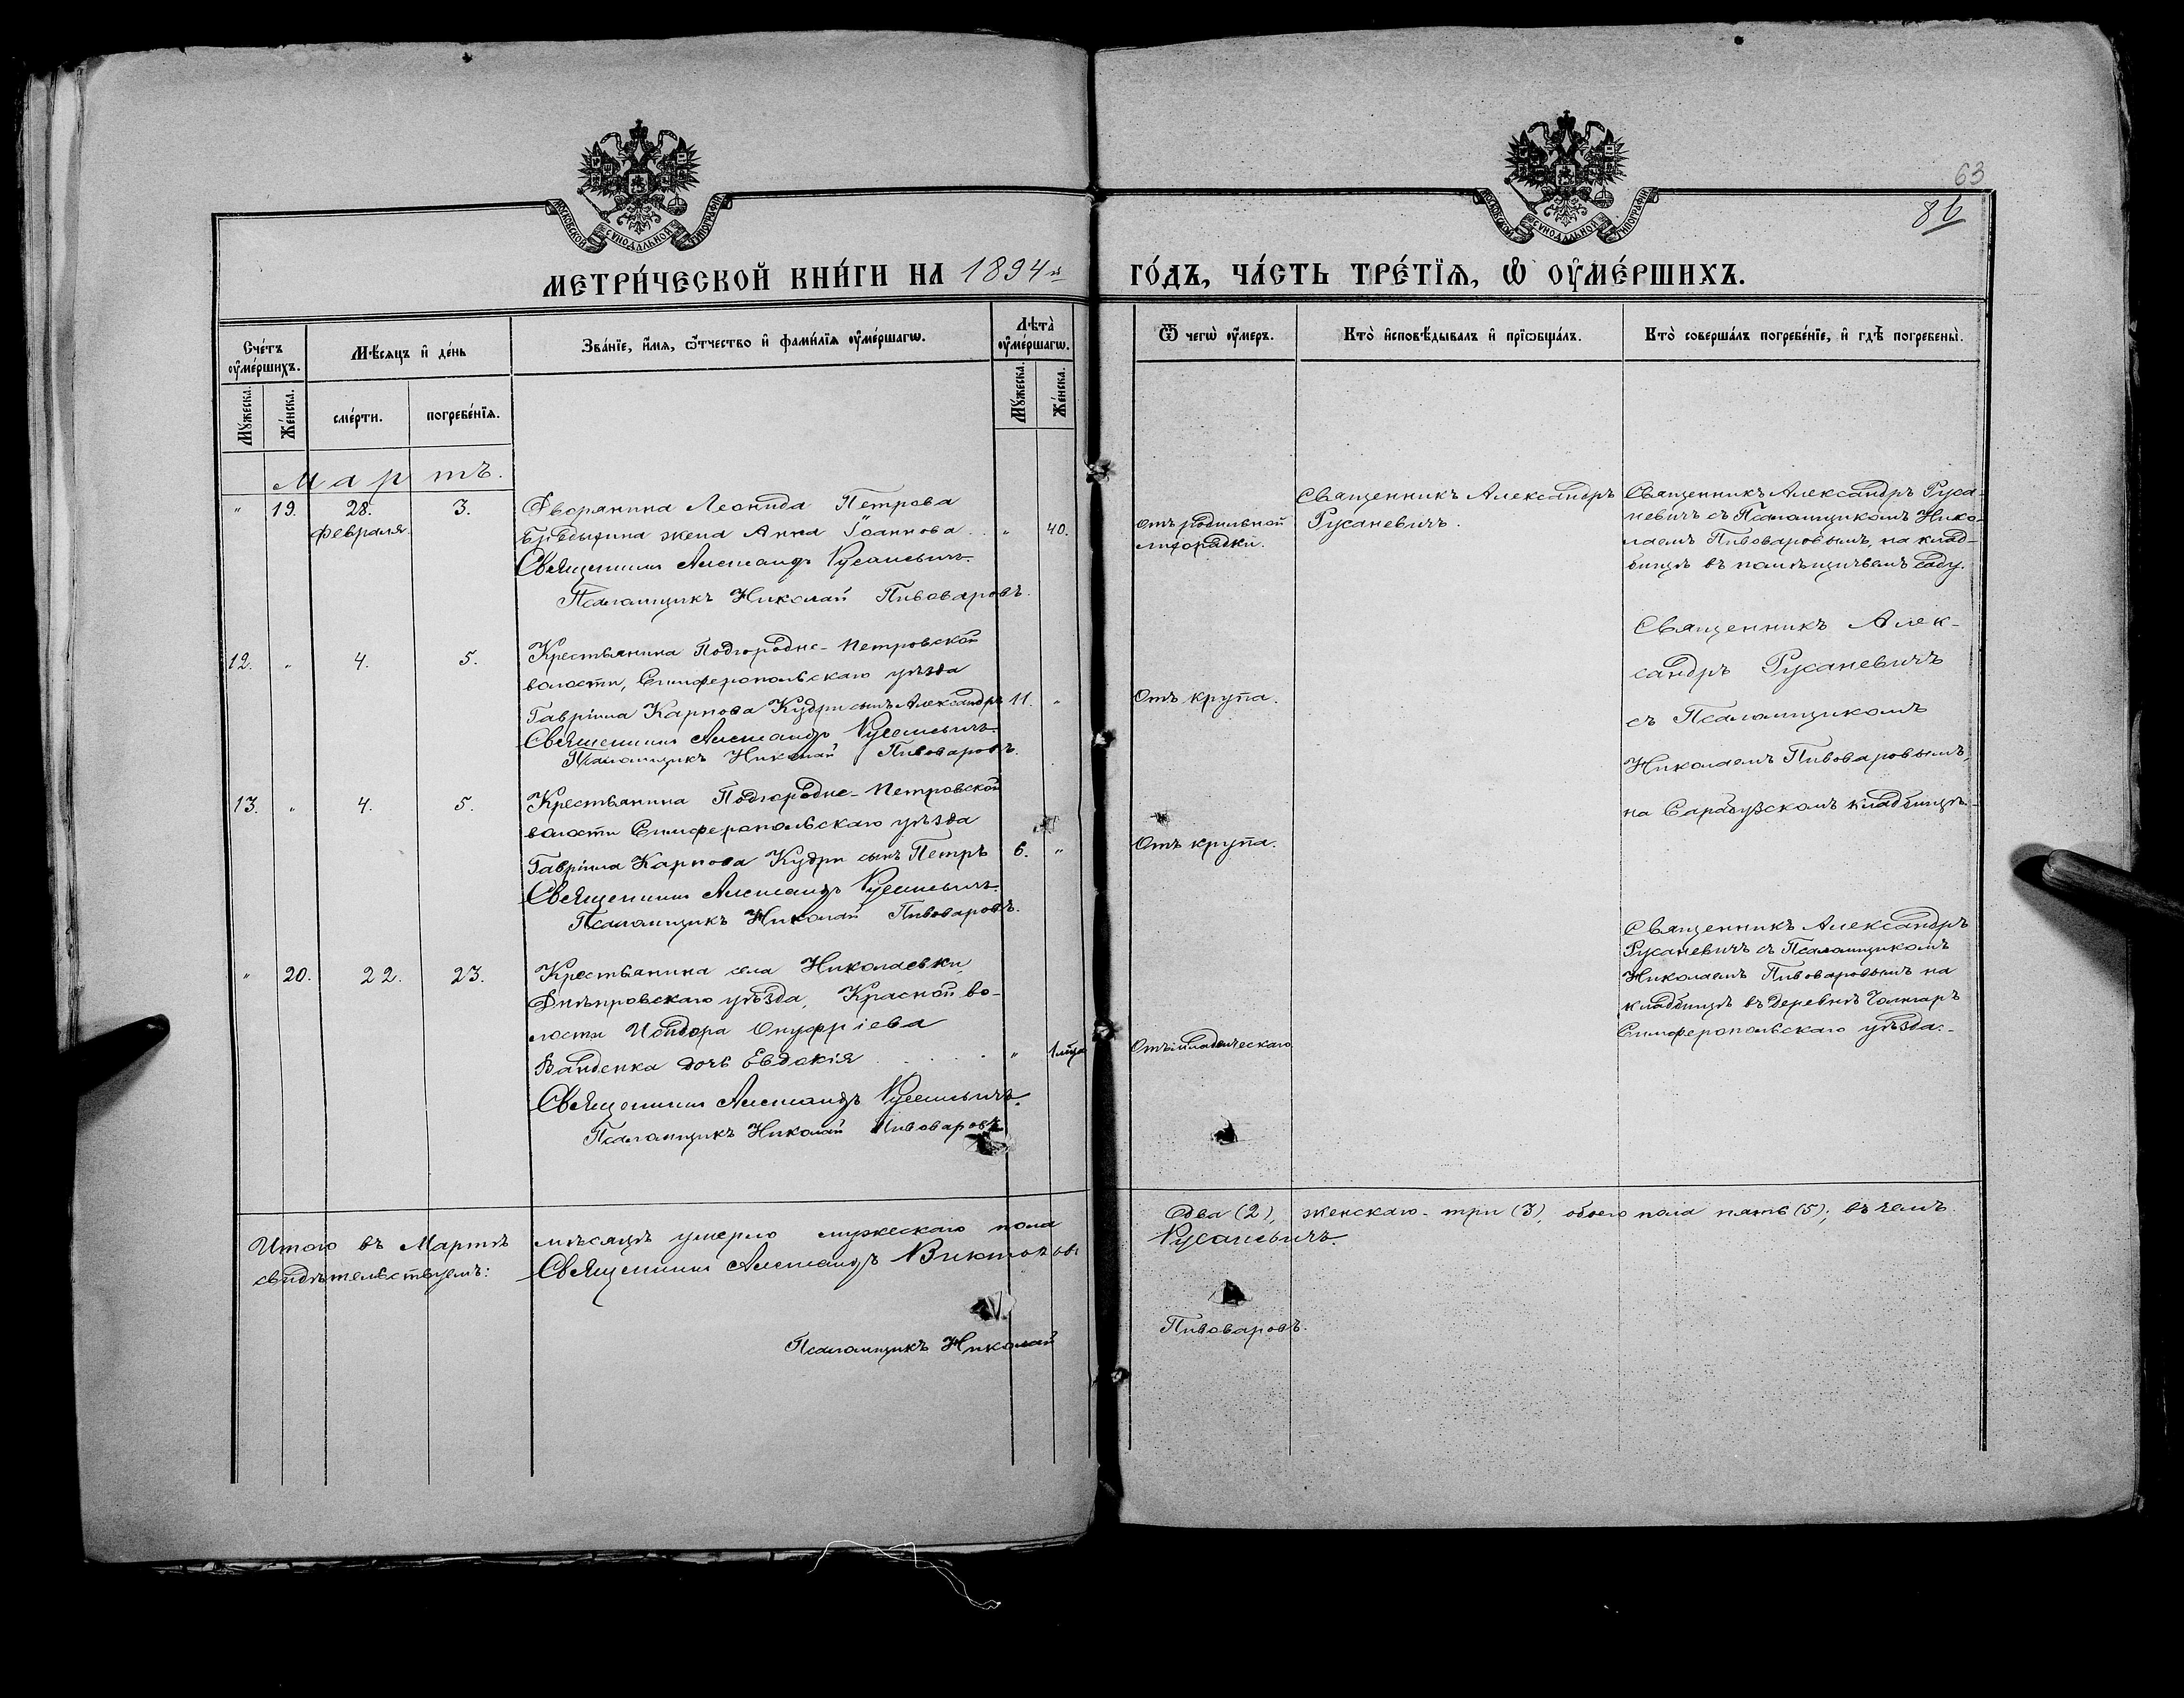 63
86
МОСКОВСКОЙ СѴНОДАЛЬНОЙ ТИПОГРАФІИ
МОСКОВСКОЙ СѴНОДАЛЬНОЙ ТИПОГРАФІИ
МЕТРИ́ЧЕСКОЙ КНИ́ГИ НА 1894й ГО́ДЪ, ЧА́СТЬ ТРЕ́ТЇѦ, Ѽ ОУМЕ́РШИХЪ.
Сче́тъ оуме́ршихъ.
Мѣ́сяцъ и де́нь
Зва́нїе, и́мѧ, ѻ́тчество и фами́лїѧ оуме́ршагѡ.
Лѣта̀ оуме́ршагѡ.
Ѿ чегѡ̀ оу́меръ.
Кто̀ исповѣ́дывалъ и прїѡбща́лъ.
Кто̀ соверша́лъ погребе́нїе, и гдѣ̀ погребены̀.
Мꙋ́жеска.
Же́нска.
сме́рти.
погребе́нїѧ.
Мꙋ́жеска.
Же́нска.
Мартъ.
" 19. 28. 3. Дворянина Леонида Петрова
Февраля
жена Анна Іоаннова . . " 40.
Священникъ Александръ Русаневичъ.
Псаломщикъ Николай Пивоваровъ.
Отъ родильной
лихорадки.
Священникъ Александръ
Русаневичъ.
Священникъ Александръ Руса-
невичъ съ Псаломщикомъ Нико-
лаемъ Пивоваровымъ, на клад-
бищѣ въ помѣщичьемъ саду.
12. " 4. 5. Крестьянина Подгородне-Петровской
волости, Симферопольскаго уѣзда
Гавріила Карпова Кудри сынъ Александръ 11. "
Священникъ Александръ Русаневичъ.
Псаломщикъ Николай Пивоваровъ.
Отъ крупа.
Священникъ Алек-
сандръ Русаневичъ
съ Псаломщикомъ
Николаемъ Пивоваровымъ,
на Сарабузскомъ кладбищѣ.
13. " 4. 5. Крестьянина Подгородне-Петровской
волости Симферопольскаго уѣзда
Гавріила Карпова Кудри сынъ Петръ 6. "
Священникъ Александръ Русаневичъ.
Псаломщикъ Николай Пивоваровъ.
Отъ крупа.
" 20. 22. 23. Крестьянина села Николаевки,
Днѣпровскаго уѣзда, Красной во-
лости Исидора Онуфріева
дочь Евдокія . . . . . " 1 мѣс.
Священникъ Александръ Русаневичъ.
Псаломщикъ Николай Пивоваровъ
Отъ младенческаго
Священникъ Александръ
Русаневичъ съ Псаломщикомъ
Николаемъ Пивоваровымъ на
кладбищѣ въ деревнѣ
Симферопольскаго уѣзда.
Итого въ Мартѣ мѣсяцѣ умерло мужескаго пола два (2), женскаго три (3), обоего пола пять (5); въ чемъ
свидѣтельствуемъ: Священникъ Александръ Викторовъ Русаневичъ.
Псаломщикъ Николай Пивоваровъ.